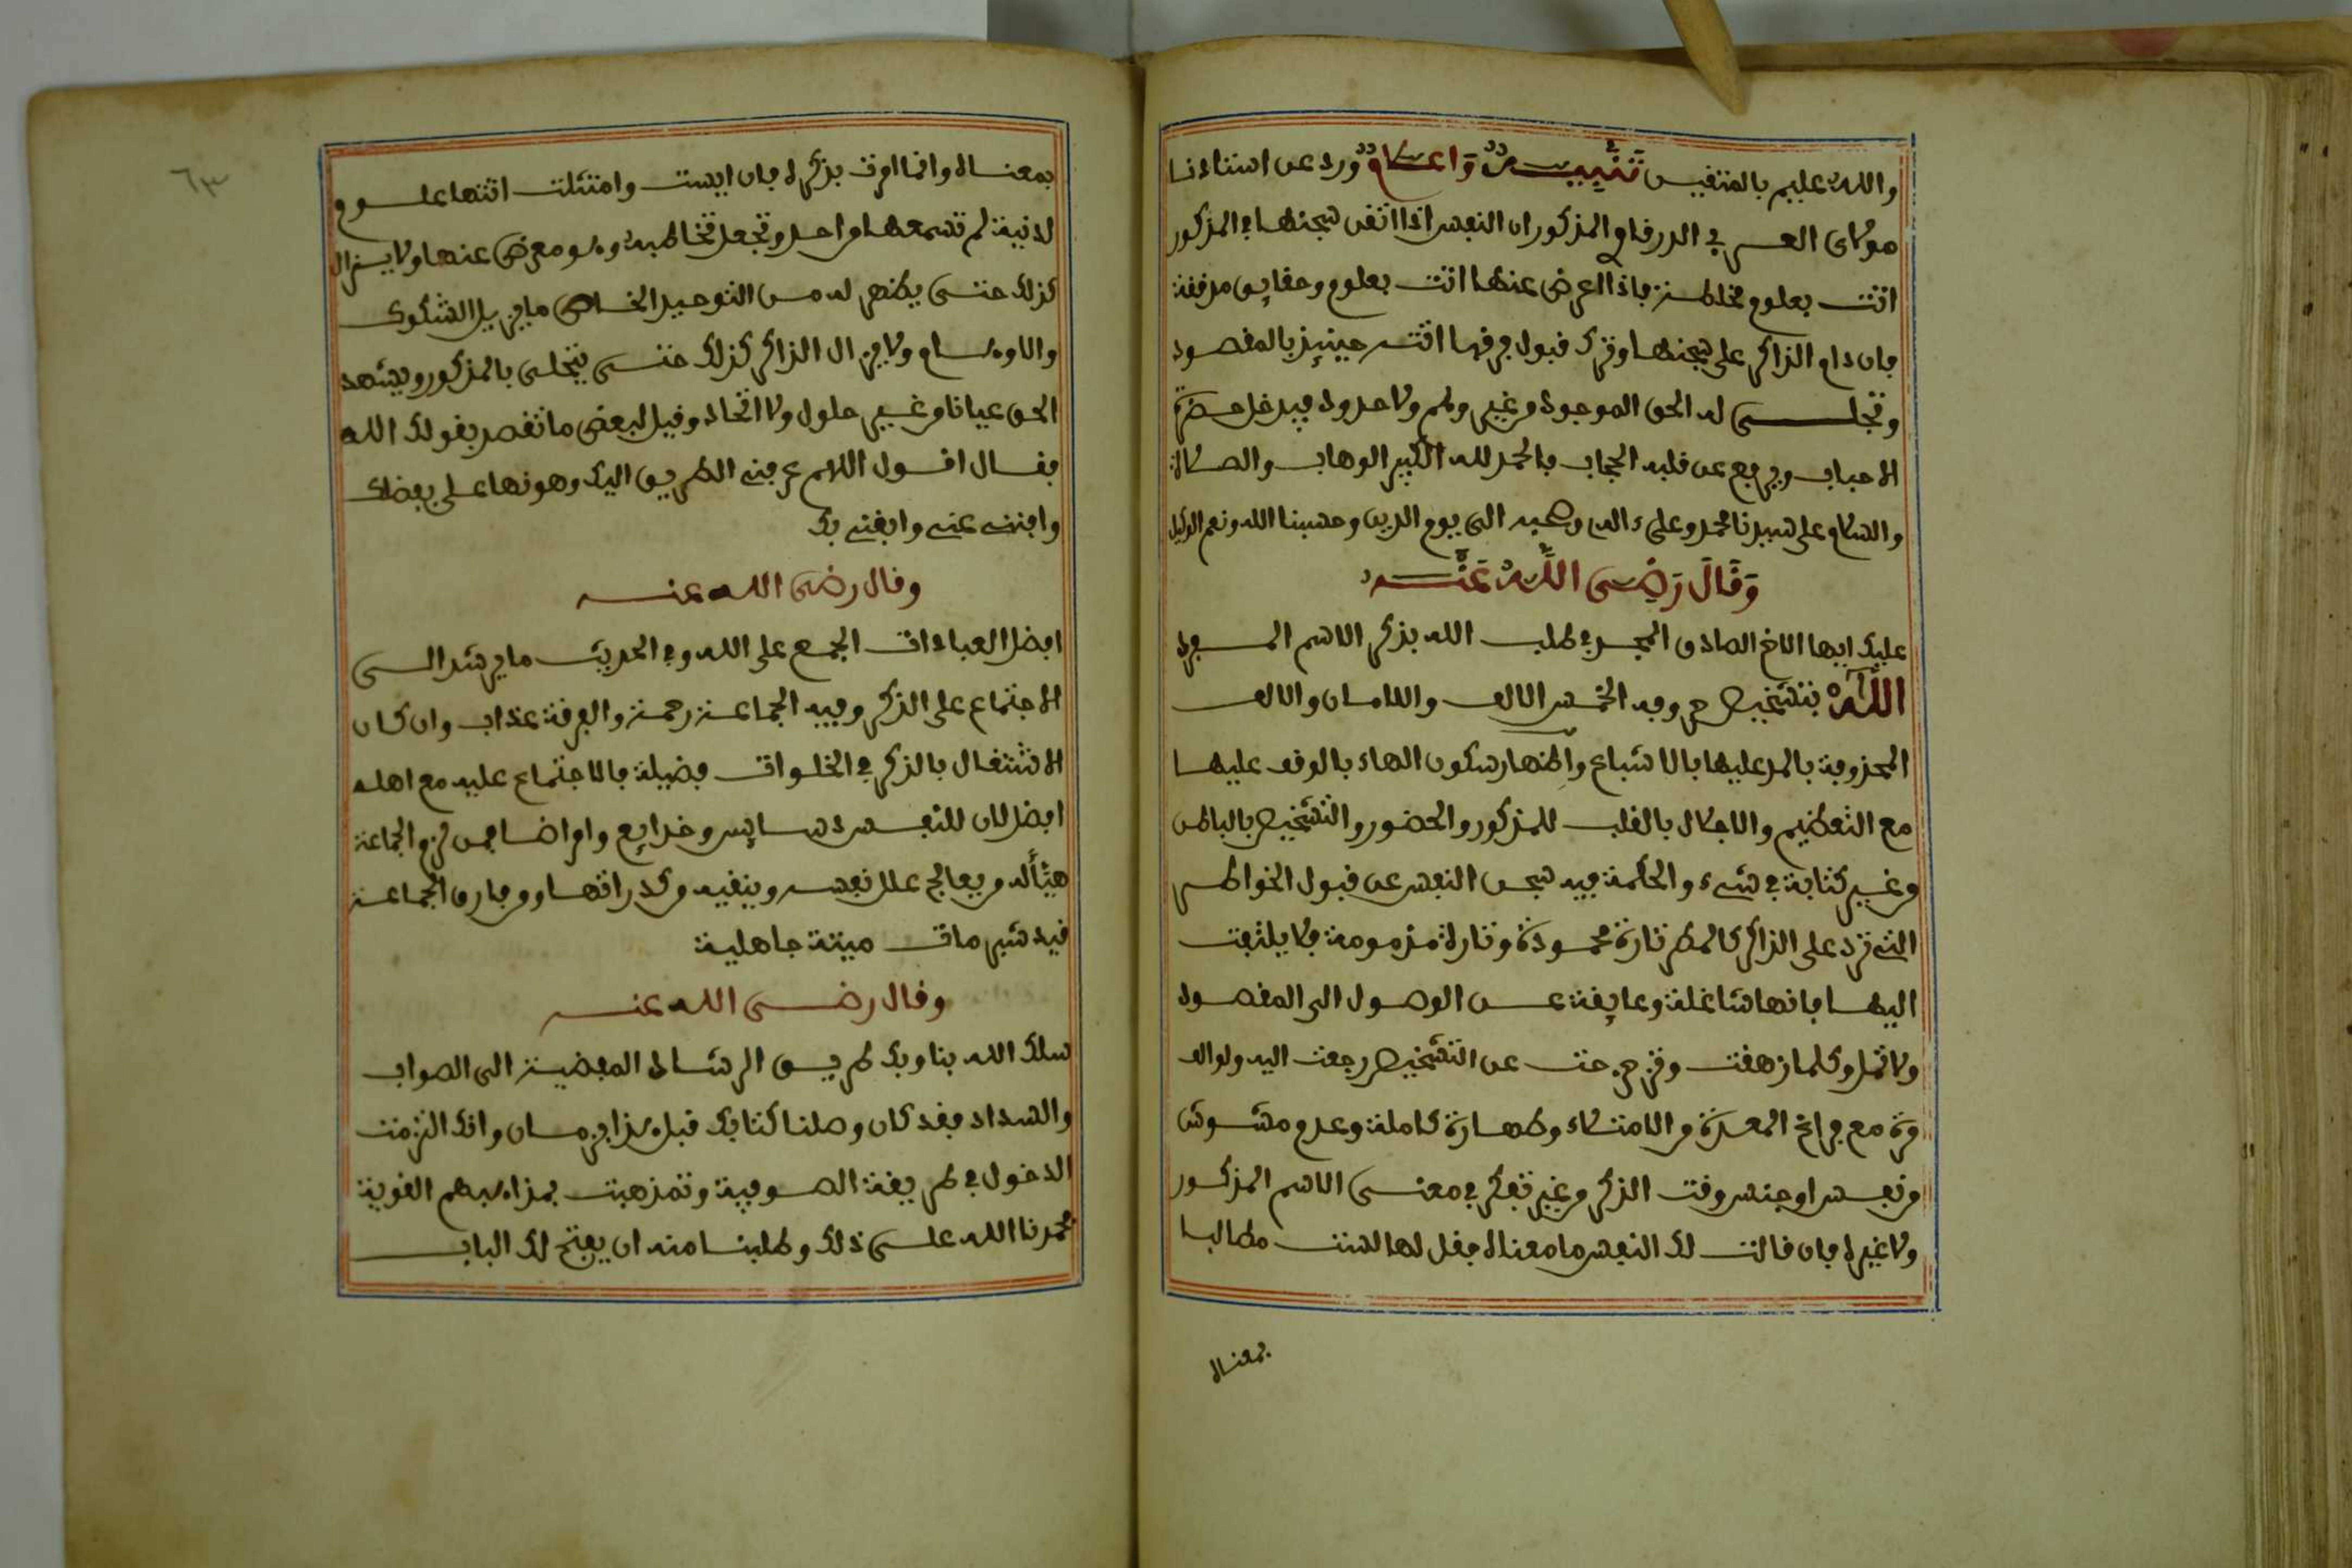 والله عليم بالمتقين تنبيه واعلام ورد عن استاذنا
مولاي العربي الدرقاوي المذكور ان النفس اذا اتفق سجنها في المذكور
اتت بعلوم مخلطة فاذا اعرض عنها اتت بعلوم وحقايق مدققة
فان دام الذاكر على سجنها وترك قبول خرقها اتته حينيذ بالمقصود
وتجلى له الحق الموجود من غير وهم ولا حدود فيدخل حضرة
الاحباب ويرفع عن قلبه الحجاب فالحمد لله الكبير الوهاب والصلاة
والسلام على سيدنا محمد وعلى ءاله وصحبه الى يوم الدين وحسبنا الله ونعم الوكيل
وقال رضي الله عنه
عليك ايها الاخ الصادق المجد في طلب الله بذكر الاسم المفرد
الله بتشخيص حروفه الخمس الالف واللامان والالف
المحذوفة بالمد عليها بالاشباع واظهار سكون الهاء بالوقف عليها
مع التعظيم والاجلال بالقلب للمذكور والحضور والتشخيص بالباطن
من غير كتابة في شيء والحكمة فيه سجن النفس عن قبول الخواطر
التي ترد على الذاكر كالمطر تارة محمودة وتارة مذمومة فلا يلتفت
اليها فانها شاغلة وعايقة عن الوصول الى المقصود
ولا تمل وكلما زهقت وخرجت عن التشخيص رجعت اليه ولو الف
مرة مع فراغ المعدة من الامتلاء وطهارة كاملة وعدم مشوش
من نفس او جنس وقت الذكر من غير تفكر في معنى الاسم المذكور
ولا غيره فان قالت لك النفس ما معناه فقل لها لست مطالبا
بمعناه
٦٣
بمعناه وانما امرت بذكره فان ايست وامتثلت اتتها علوم
لدنية لم تسمعها من احد وتجعل تخاطبه وهو معرض عنها ولا يزال
كذلك حتى يظهر له من التوحيد الخاص ما يزيل الشكوك
والاوهام ولا يزال الذاكر كذلك حتى يتحلى بالمذكور ويشهد
الحق عيانا من غير حلول ولا اتحاد وقيل لبعض ما تقصد بقولك الله
فقال اقول اللهم عرفني الطريق اليك وهونها علي بفضلك
وافنني عني وابقني بك
وقال رضي الله عنه
افضل العبادات الجمع على الله وفي الحديث ما يرشد الى
الاجتماع على الذكر وفيه الجماعة رحمة والفرقة عذاب وان كان
الاشتغال بالذكر في الخلوات فضيلة فالاجتماع عليه مع اهله
افضل لان للنفس دسايس وخدايع وامراضا فمن لزم الجماعة
هيئ له من يعالج علل نفسه وينقيه من كدراتها ومن فارق الجماعة
قيد شبر مات ميتة جاهلية
وقال رضي الله عنه
سلك الله بنا وبك طريق الرشاد المفضية الى الصواب
والسداد فقد كان وصلنا كتابك قبل هذا بزمان وانك التزمت
الدخول في طريقة الصوفية وتمذهبت بمذاهبهم القوية
فحمدنا الله على ذلك وطلبنا منه ان يفتح لك الباب